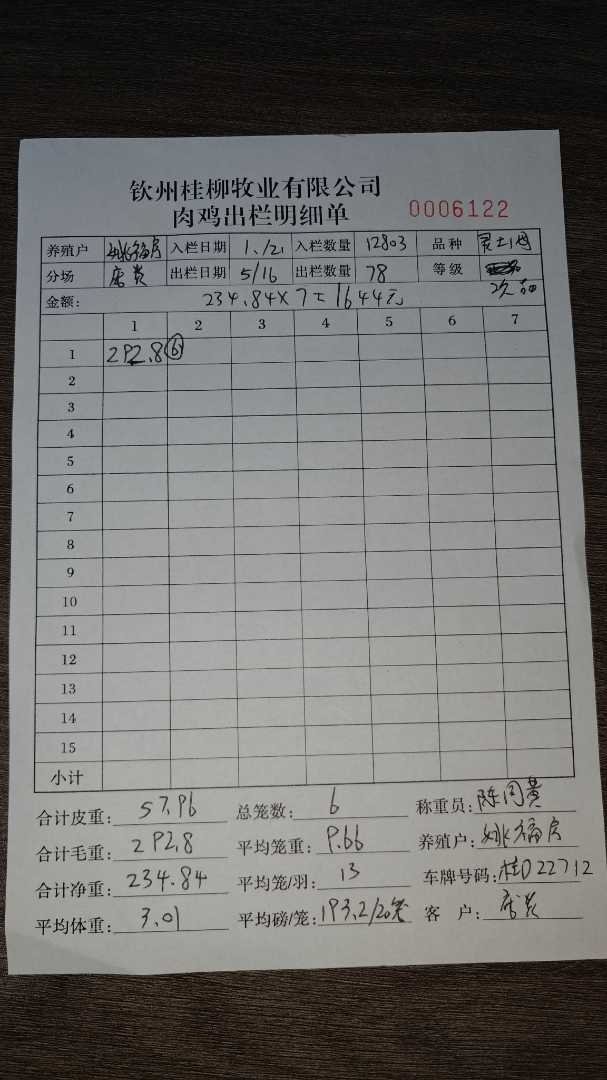 钦州桂柳牧业有限公司
肉鸡出栏明细单 0006122
养殖户 姚福房 入栏日期 1./21 入栏数量 12803 品种 灵土1母
分场 入栏日期 5/16 出栏数量 78 等级 次品
金额: 234.84×7=1644元
1 2 3 4 5 6 7
1 292.8 ⑥
2
3
4
5
6
7
8
9
10
11
12
13
14
15
小计
合计皮重: 57.96 总笼数: 6 称重员: 陈同贵
合计毛重: 292.8 平均笼重: 9.66 养殖户: 姚福房
合计净重: 234.84 平均笼/羽: 13 车牌号码: 桂D22712
平均体重: 3.01 平均磅/笼: 193.2/20笼 客 户: